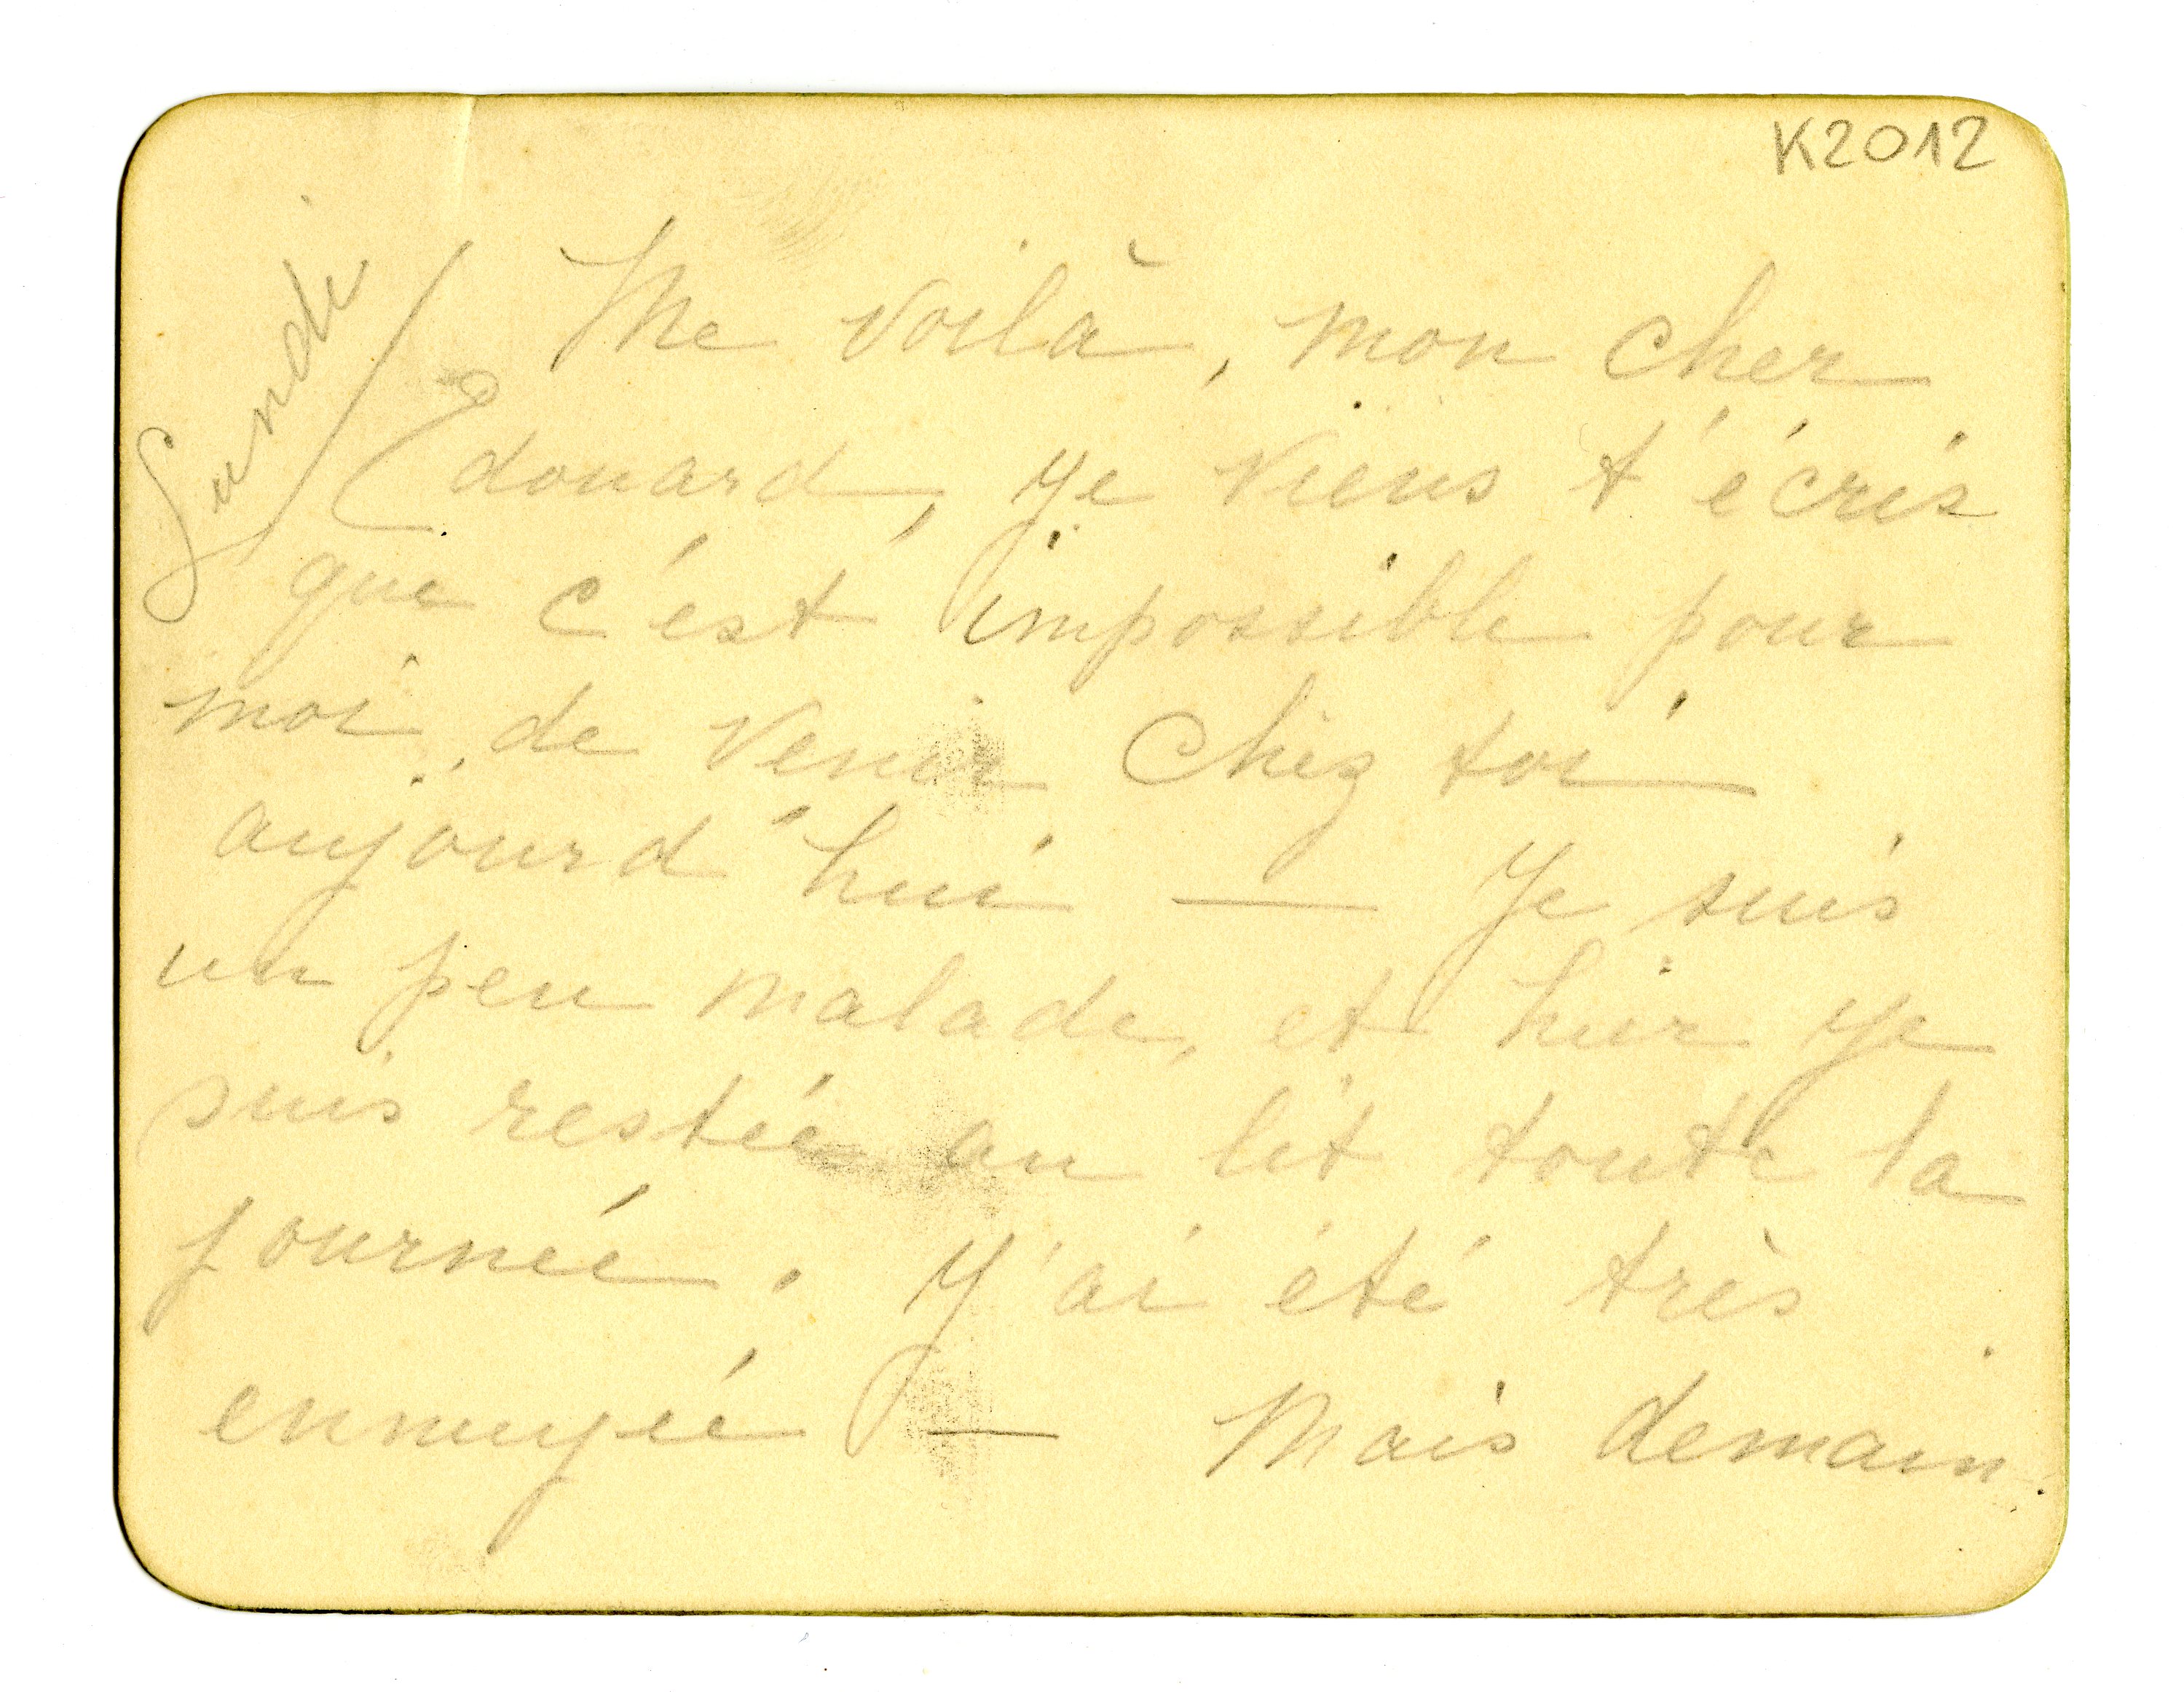 K2012
Lundi
Me voilà, mon cher
Edouard, je viens t'écris
que c'est impossible pour
moi, de venir chez toi
aujourd'hui — Je suis
un peu malade, et hier je
suis restée au lit toute la
journée. J'ai été très
ennuyée — Mais demain